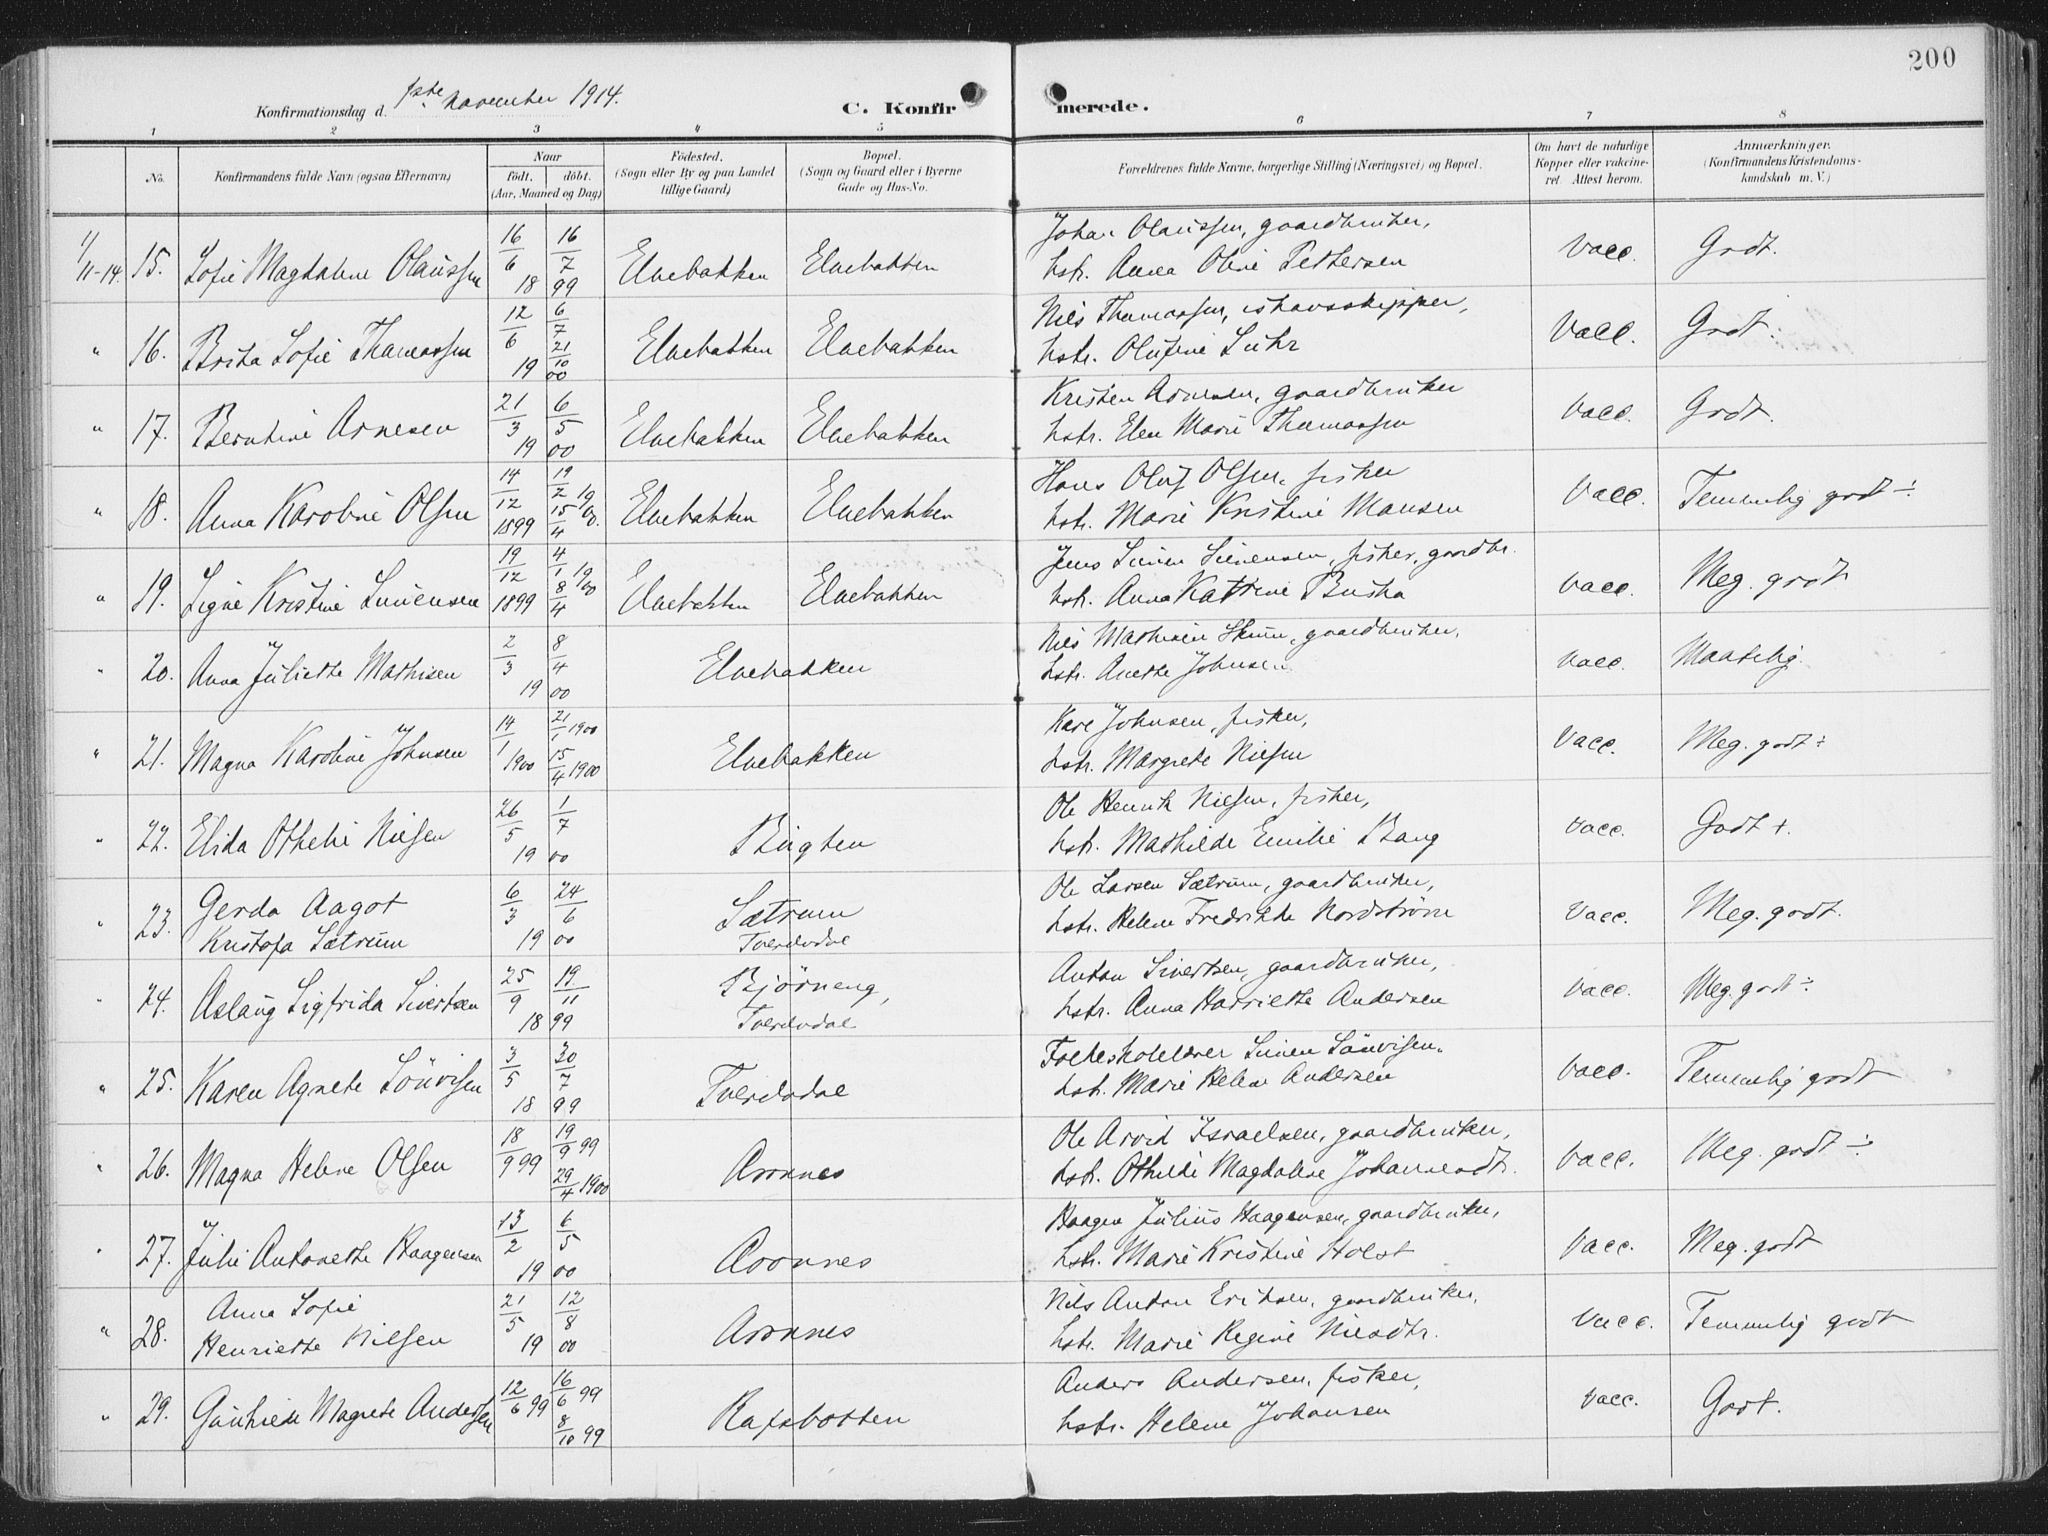 200
Konfirmationsdag d. 1ste november 1914.
C. Konfirmerede.
1 2 3 4 5 6 7 8
No.
Konfirmandens fulde Navn (ogsaa Efternavn)
Naar
födt. döbt.
(Aar, Maaned og Dag)
Födested.
(Sogn eller By og paa Landet
tillige Gaard)
Bopæl.
(Sogn og Gaard eller i Byerne
Gade og Hus-No.
Forældrenes fulde Navne, borgerlige Stilling (Næringsvei) og Bopæl.
Om havt de naturlige
Kopper eller vakcine-
ret. Attest herom.
Anmærkninger.
(Konfirmandens Kristendoms-
kundskab m. V.)
1/11-14. 15. Sofie Magdalene Olaussen 16/6 16/7 1899 Elvebakken Elvebakken Johan Olaussen, gaardbruker,
hstr. Anna Oline Pettersen vacc. Godt.
" 16. Brita Sofie Thomassen 12/6 6/7 21/10 1900 Elvebakken Elvebakken Nils Thomassen, ishavsskipper,
hstr. Olufine Suhr vacc. Godt.
" 17. Berntine Arnesen 21/3 6/5 1900 Elvebakken Elvebakken Kristen Arnesen, gaardbruker
hstr. Elen Marie Thomassen vacc. Godt.
" 18. Anna Karoline Olsen 14/12 1899 19/2 15/4 19/00. Elvebakken Elvebakken Hans Oluf Olsen, fisker
hstr. Marie Kristine Monsen vacc. Temmelig godt ÷
" 19. Signe Kristine Simensen 19/12 1899 4/1 8/4 19/00 Elvebakken Elvebakken Jens Simen Simensen, fisker, gaardbr.
hstr. Anna Katrine Buska vacc. Meg. godt
" 20. Anna Juliette Mathisen 2/3 8/4 1900 Elvebakken Nils Mathisen Skum, gaardbruker,
hstr. Anette Johnsen vacc. Maatelig.
" 21. Magna Karoline Johnsen 14/1 1900 21/1 1900 15/4 1900 Elvebakken Kare Johnsen, fisker,
hstr. Margrete Nilsen vacc. Meg. godt ÷
" 22. Elida Othelie Nilsen 26/5 1/7 1900 Bugten Ole Henrik Nilsen, fisker,
hstr. Mathilde Emilie Bang vacc. Godt +.
" 23. Gerda Aagot
Kristofa Sætrum 6/3 24/6 1900 Sætrum
Tverelvdal Ole Larsen Sætrum, gaardbruker,
hstr. Helene Fredrikke Nordström vacc. Meg. godt.
" 24. Aslaug Sigfrida Sivertsen 25/9 19/11 1899 Bjørneng,
Tverelvdal Anton Sivertsen, gaardbruker,
hstr. Anna Harriette Andersen vacc. Meg. godt ÷
" 25. Karen Agnete Sönvisen 3/5 30/7 1899 Tverelvdal Folkeskolelærer Simen Sönvisen,
hstr. Marie Helene Andersen vacc. Temmelig godt
" 26. Magna Helene Olsen 18/9 99 19/9 99 29/4 1900 Aronnes Ole Arvid Israelsen, gaardbruker,
hstr. Othilde Magdalene Johannesdt. vacc. Meg. godt ÷
" 27. Julie Antonette Haagensen 13/2 6/5 1900 Aronnes Haagen Julius Haagensen, gaardbruker,
hstr. Marie Kristine Holst vacc. Meg. godt
" 28. Anna Sofie
Henriette Nilsen 21/5 12/8 1900 Aronnes Nils Anton Eriksen, gaardbruker,
hstr. Marie Regine Nilsdtr. vacc. Temmelig godt
" 29. Gunhild Magrete Andersen 12/6 99 16/6 99 8/10 99 Rafsbotten Anders Andersen, fisker,
hstr. Helene Johansen vacc. Godt.